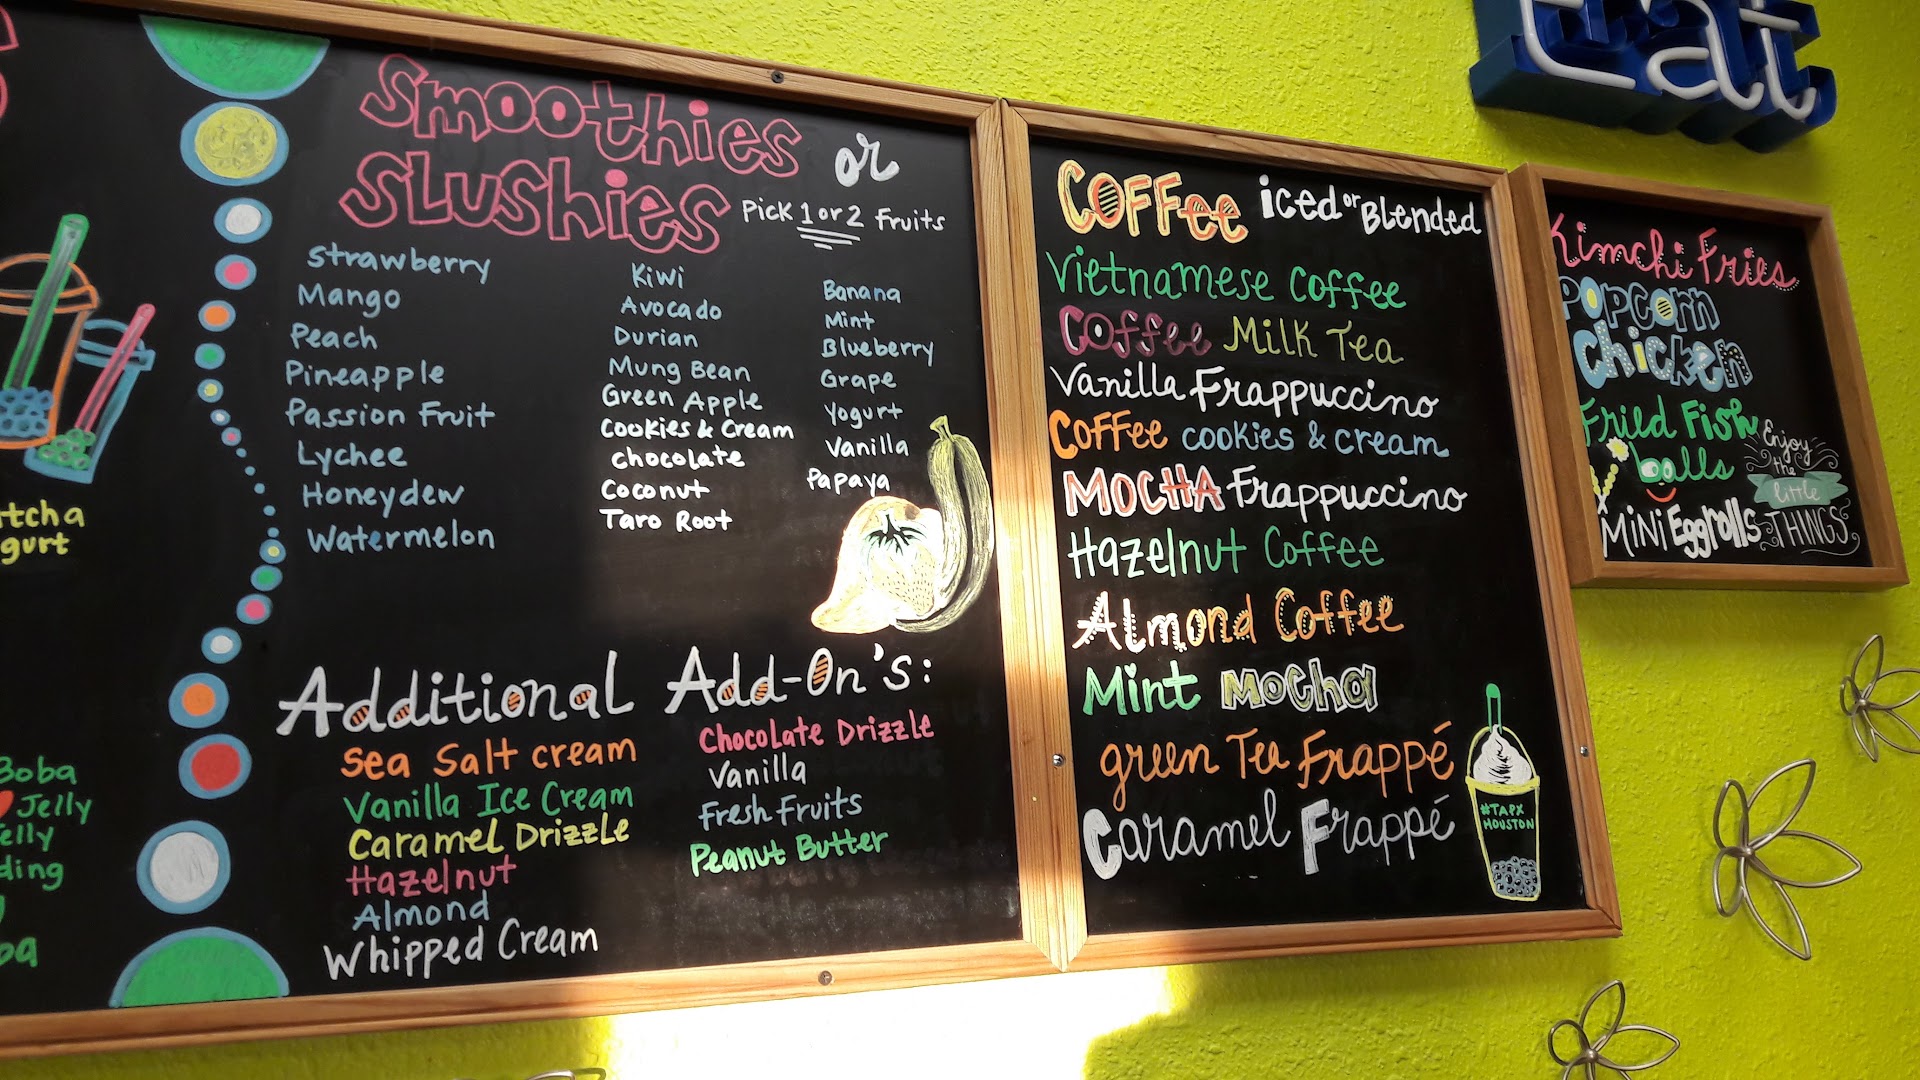 tcha
gurt
Boba
Jelly
elly
ding
Smoothies or
Slushies
Pick 1 or 2 Fruits
Strawberry
Mango
Peach
Pineapple
Passion Fruit
Lychee
Honeydew
Watermelon
Kiwi
Avocado
Durian
Mung Bean
Green Apple
Cookies & Cream
Chocolate
Coconut
Taro Root
Banana
Mint
Blueberry
Grape
Yogurt
Vanilla
Papaya
Additional Add-On's:
Sea Salt cream
Vanilla Ice Cream
Caramel Drizzle
Hazelnut
Almond
Whipped Cream
Chocolate Drizzle
Vanilla
Fresh Fruits
Peanut Butter
Coffee iced or Blended
Vietnamese Coffee
Coffee Milk Tea
Vanilla Frappuccino
Coffee cookies & cream
MOCHA Frappuccino
Hazelnut Coffee
Almond Coffee
Mint Mocha
green Tea Frappé
Caramel Frappé
#TAPX
HOUSTON
Kimchi Fries
Popcorn
Chicken
Fried Fish
balls
Mini Eggrolls
Enjoy
the
little
THINGS